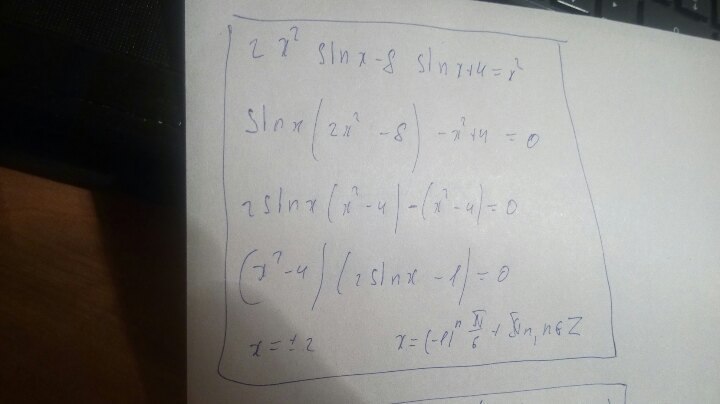 2 x² sin x - 8 sin x + 4 = x²
sin x (2x² - 8) - x² + 4 = 0
2 sin x (x² - 4) - (x² - 4) = 0
(x² - 4) (2 sin x - 1) = 0
x = ± 2 x = (-1)ⁿ π/6 + πn, n ∈ Z